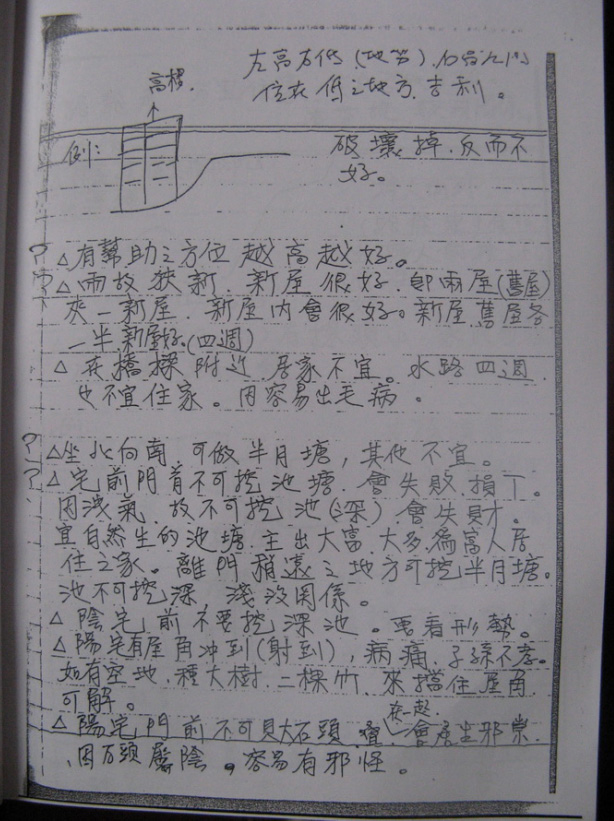 左高右低(地勢)
高樓. 位在低之地方.吉利。
例: 破壞掉.反而不
好。
? △有幫助之方位越高越好。
? △兩故狹新.新屋很好.即兩屋(舊屋)
夾一新屋.新屋內會很好。新屋舊屋各
一半新屋好(四週)
△在橋樑附近.居家不宜。水路四週
也不宜住家。因容易出毛病.
? △坐北向南.可做半月塘,其他不宜。
? △宅前門首不可挖池塘.會失敗.損丁。
因洩氣.故不可挖池(深).會失財.
宜自然生的池塘.主出大富.大多為富人居
住之家。離門稍遠之地方可挖半月塘。
池不可挖深.淺沒關係。
△陰宅前不要挖深池。要看形勢。
△陽宅有屋角冲到(射到),病痛.子孫不孝。
如有空地.種大樹二棵竹.來擋住屋角.
可解。
在起.
△陽宅門前不可見大石頭.會產生邪祟.
因石頭屬陰。容易有邪怪。